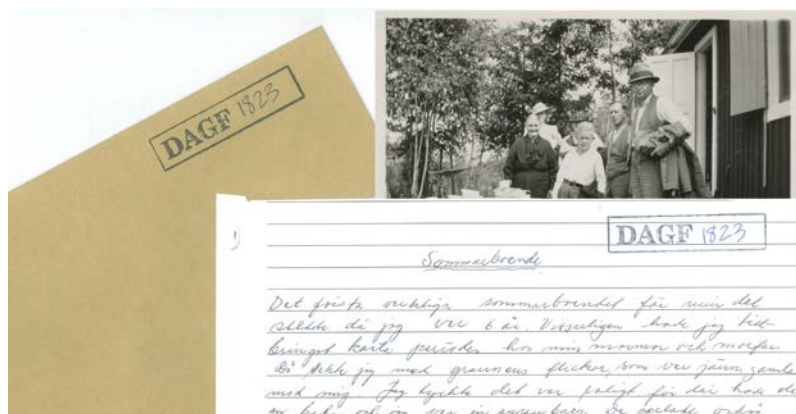 DAGF 1823
1)
DAGF 1823
Sommarboende
Det första verkliga sommarboendet för min del
skedde då jag var 6 år. Visserligen hade jag till-
bringat korta perioder hos min mormor och morfar
Då lekte jag med grannens flickor, som var jämngamla
med mig. Jag tyckte det var roligt för där hade de
en och om var De spelade också